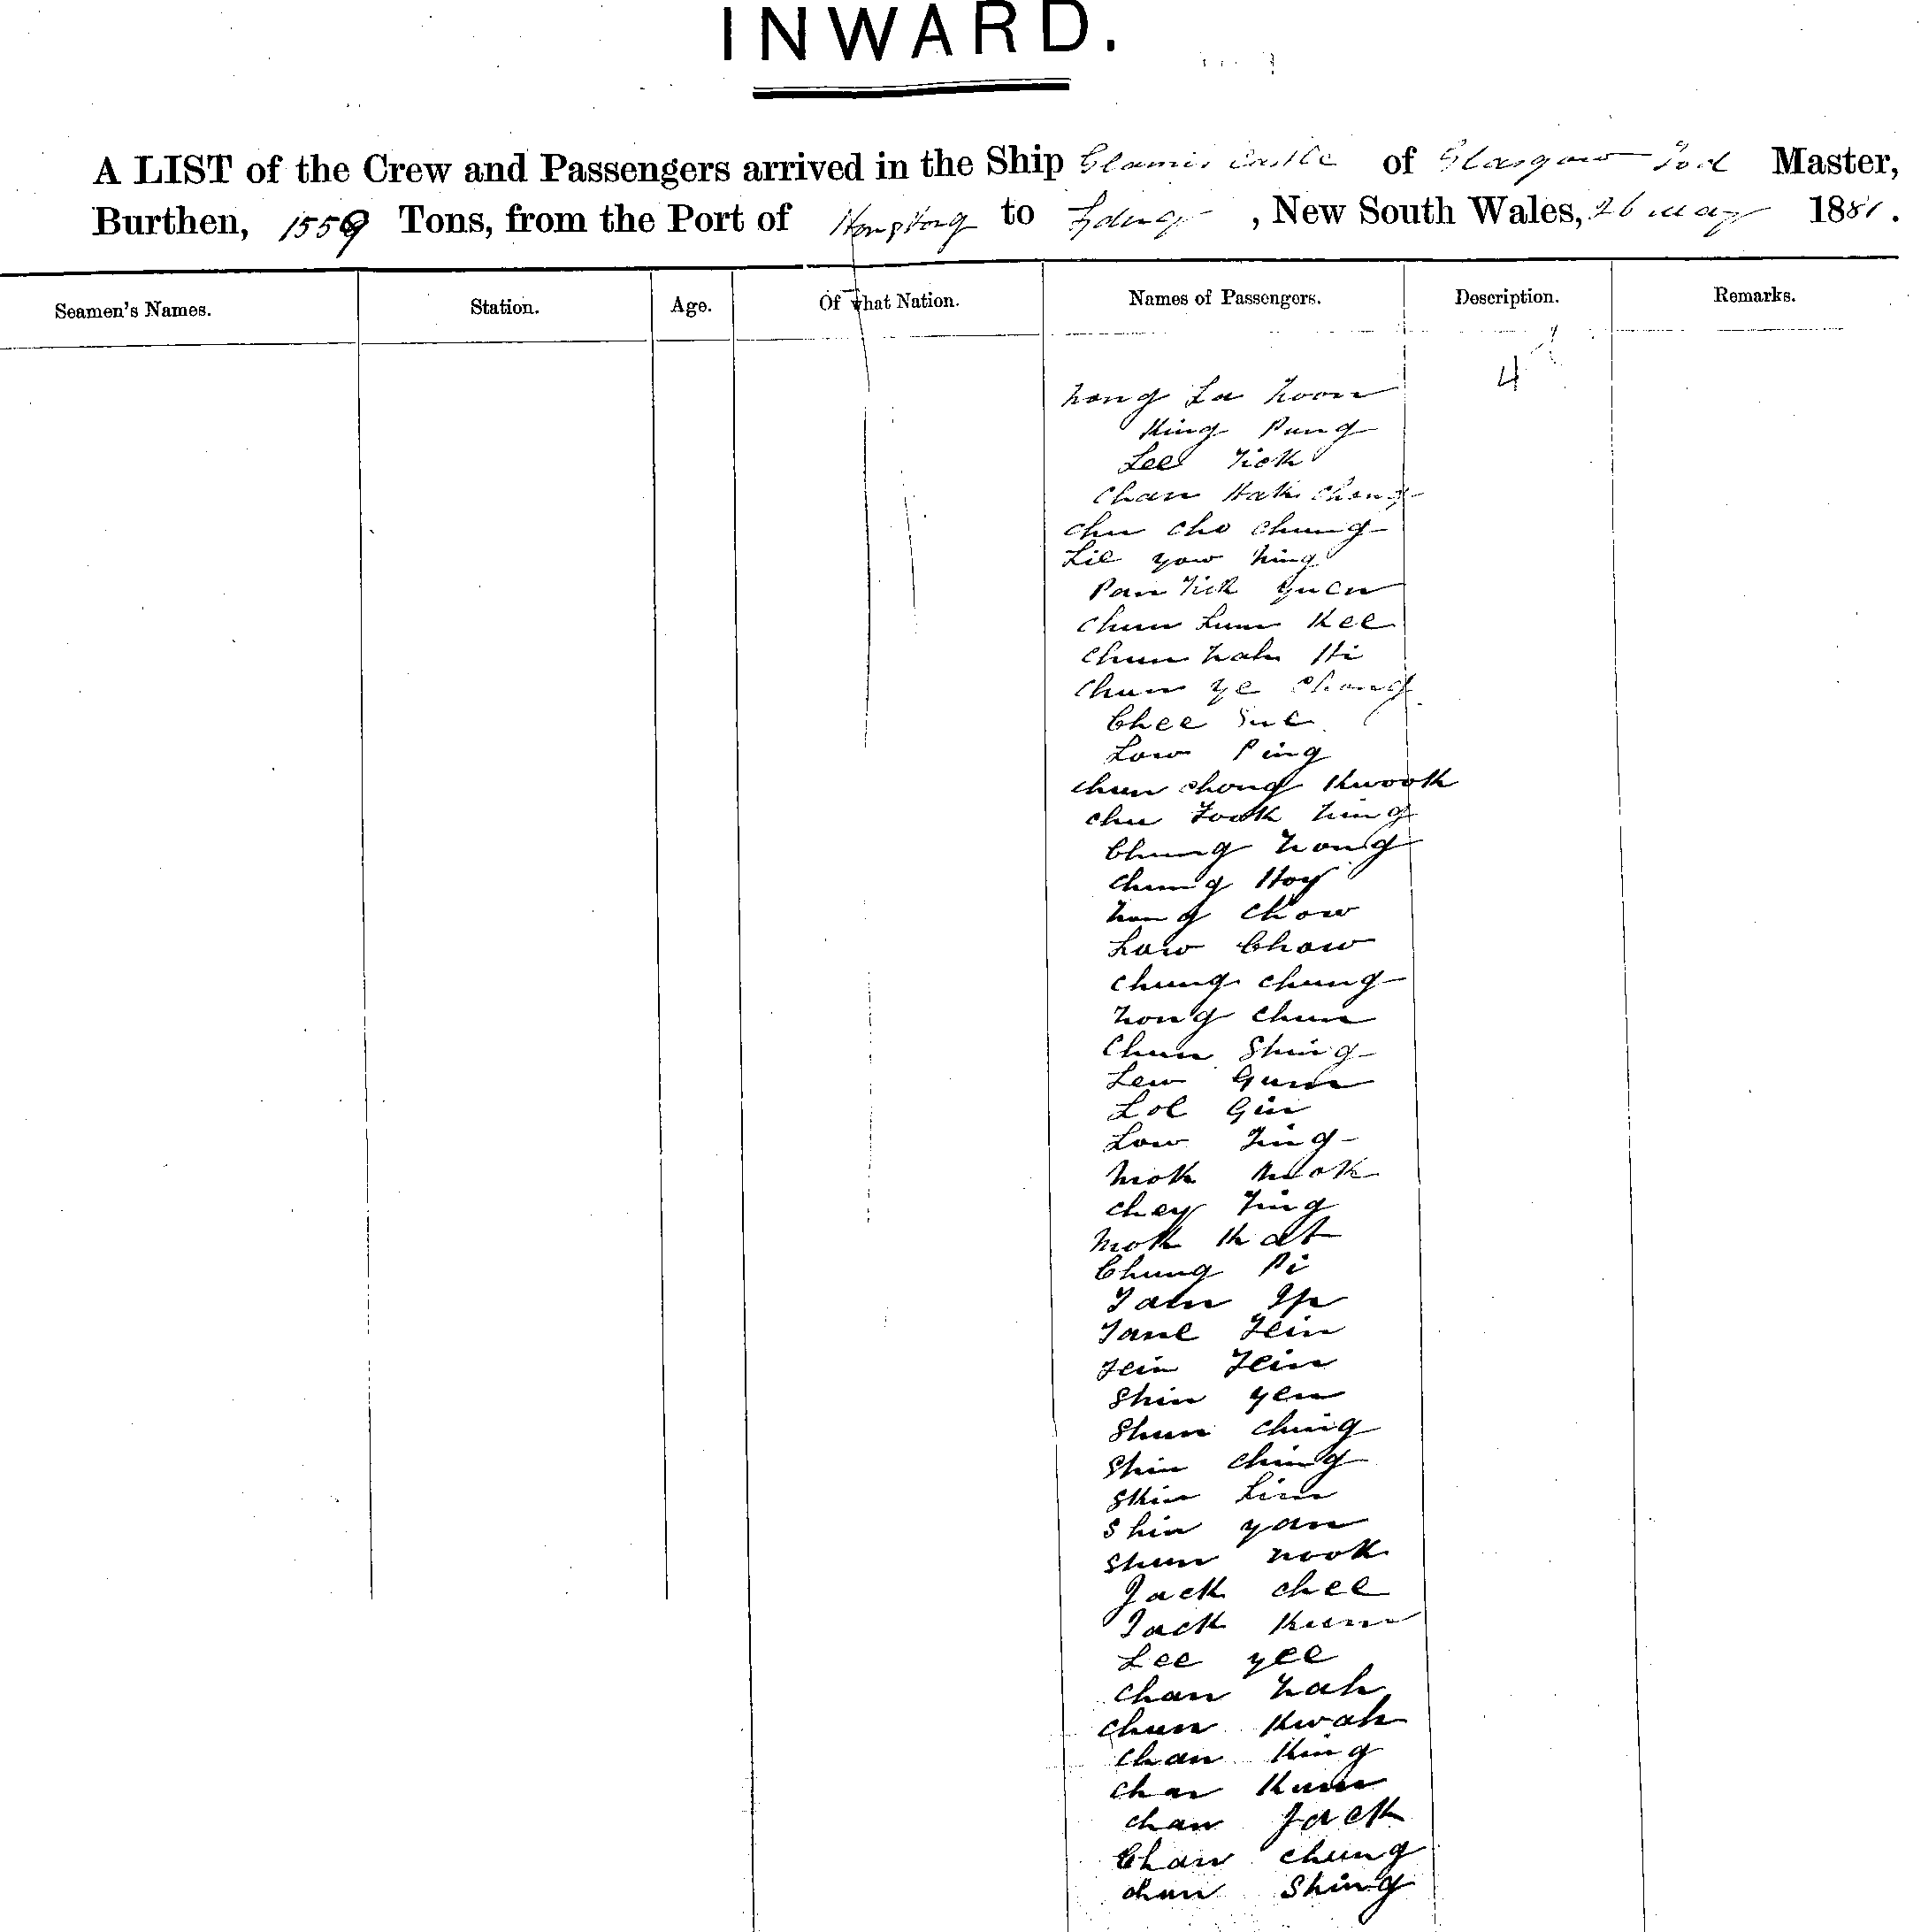 INWARD.
A LIST of the Crew and Passengers arrived in the Ship Glamis Castle of Glasgow Tod Master,
Burthen, 1559 Tons, from the Port of Hongkong to Sydney, New South Wales, 26 may 1881.
Seamen's Names. Station. Age. Of what Nation. Names of Passengers. Description. Remarks.
4
hong La hoon
King Pung
Lee Tick
Chan Hak Chong
Chu Cho Chung
Lie yow hing
Pan Tick Yuen
Chun Lum Kee
Chun hah Hi
Chun Ye Chong
Chee Sue
Low Ping
Chun Chong Kwook
Chu Fook hing
Chung hong
Chung Hoy
hong Chow
Low Chow
Chung Chung
hong Chun
Chun Shing
Lew Gum
Loe Gin
Low Ting
Mok Mok
Chey Ting
Mok Kat
Chung Pi
Tam Ip
Tane Tein
Tein Tein
Shin yen
Shun Ching
Shin Ching
Shin Lim
Shin yan
Shun nook
Jack Chee
Jack Kum
Lee yee
Chan hah
Chun Kwah
Chan King
Chan Kum
Chan Jack
Chan Chung
Chun Shing